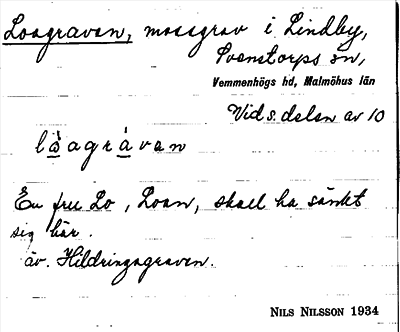 Loagravan, mossgrav i Lindby,
Svenstorps sn,
Vemmenhögs hd, Malmöhus län
Vid s. delen av 10
låagrávan
En fru Lo, Loan, skall ha sänkt
sig här.
äv. Hildringagraven.
NILS NILSSON 1934